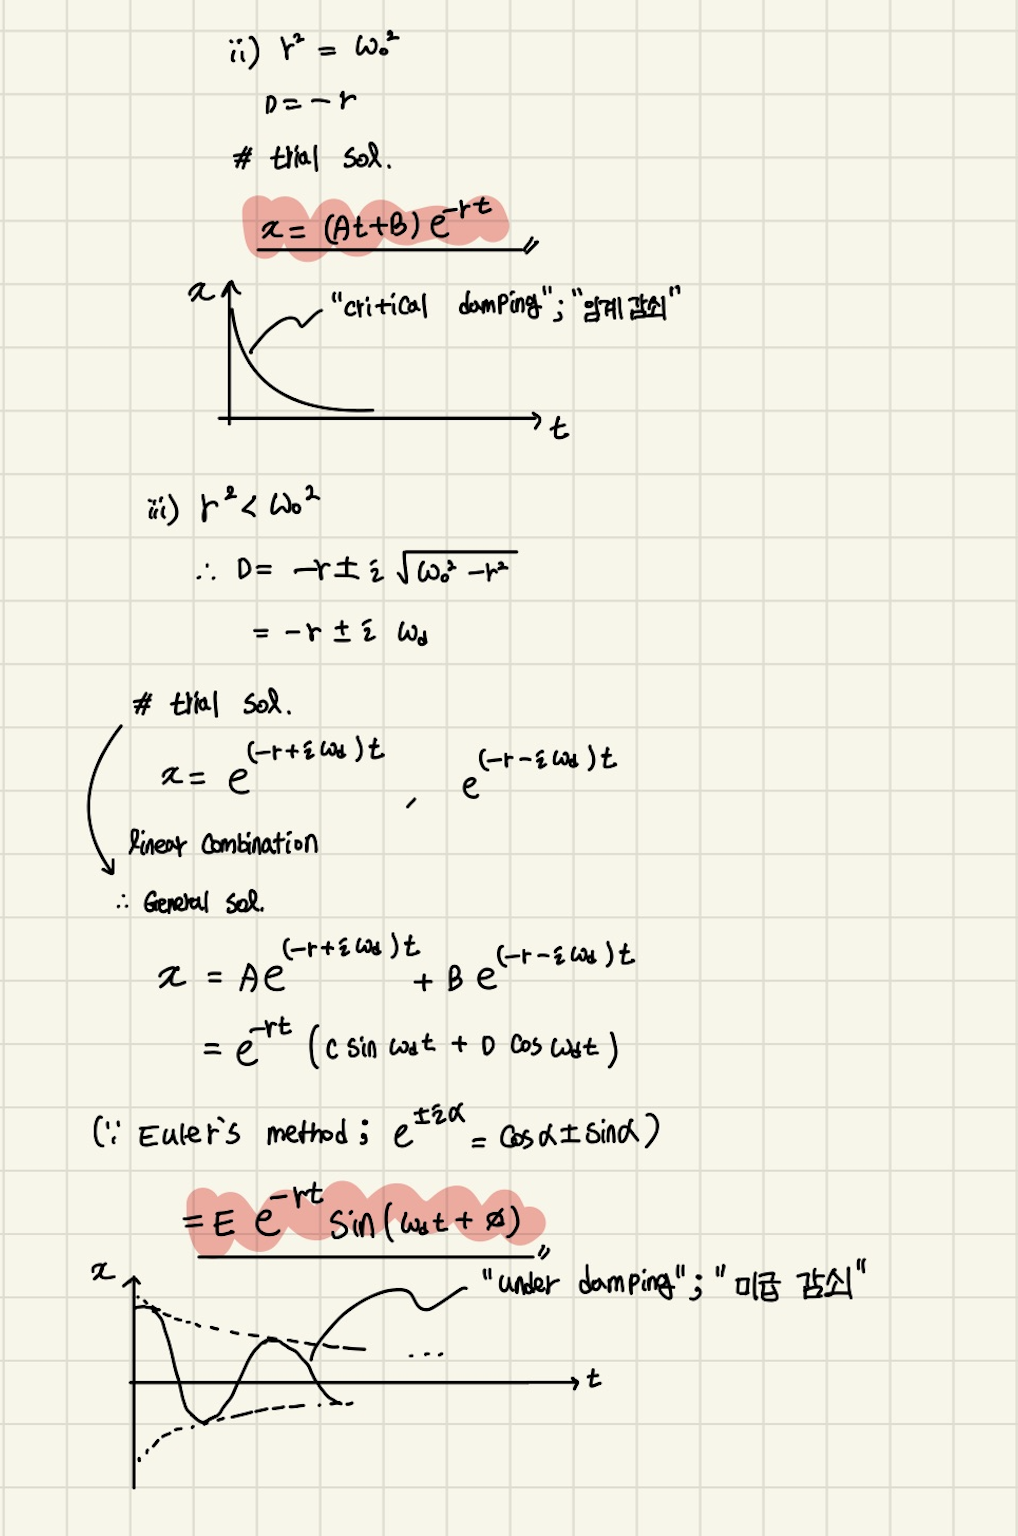 ii) r² = ω₀²
D = -r
# trial sol.
x = (At+B) e^{-rt}
x
"critical damping" ; "임계감쇠"
t
iii) r² < ω₀²
∴ D = -r ± i √(ω₀² - r²)
= -r ± i ω_d
# trial sol.
x = e^{(-r+iω_d)t} , e^{(-r-iω_d)t}
linear combination
∴ General sol.
x = Ae^{(-r+iω_d)t} + B e^{(-r-iω_d)t}
= e^{-rt} (C sin ω_d t + D cos ω_d t)
(∵ Euler's method ; e^{±iα} = cosα ± sinα)
= E e^{-rt} sin(ω_d t + ø)
x
"under damping" ; "미급 감쇠"
...
t